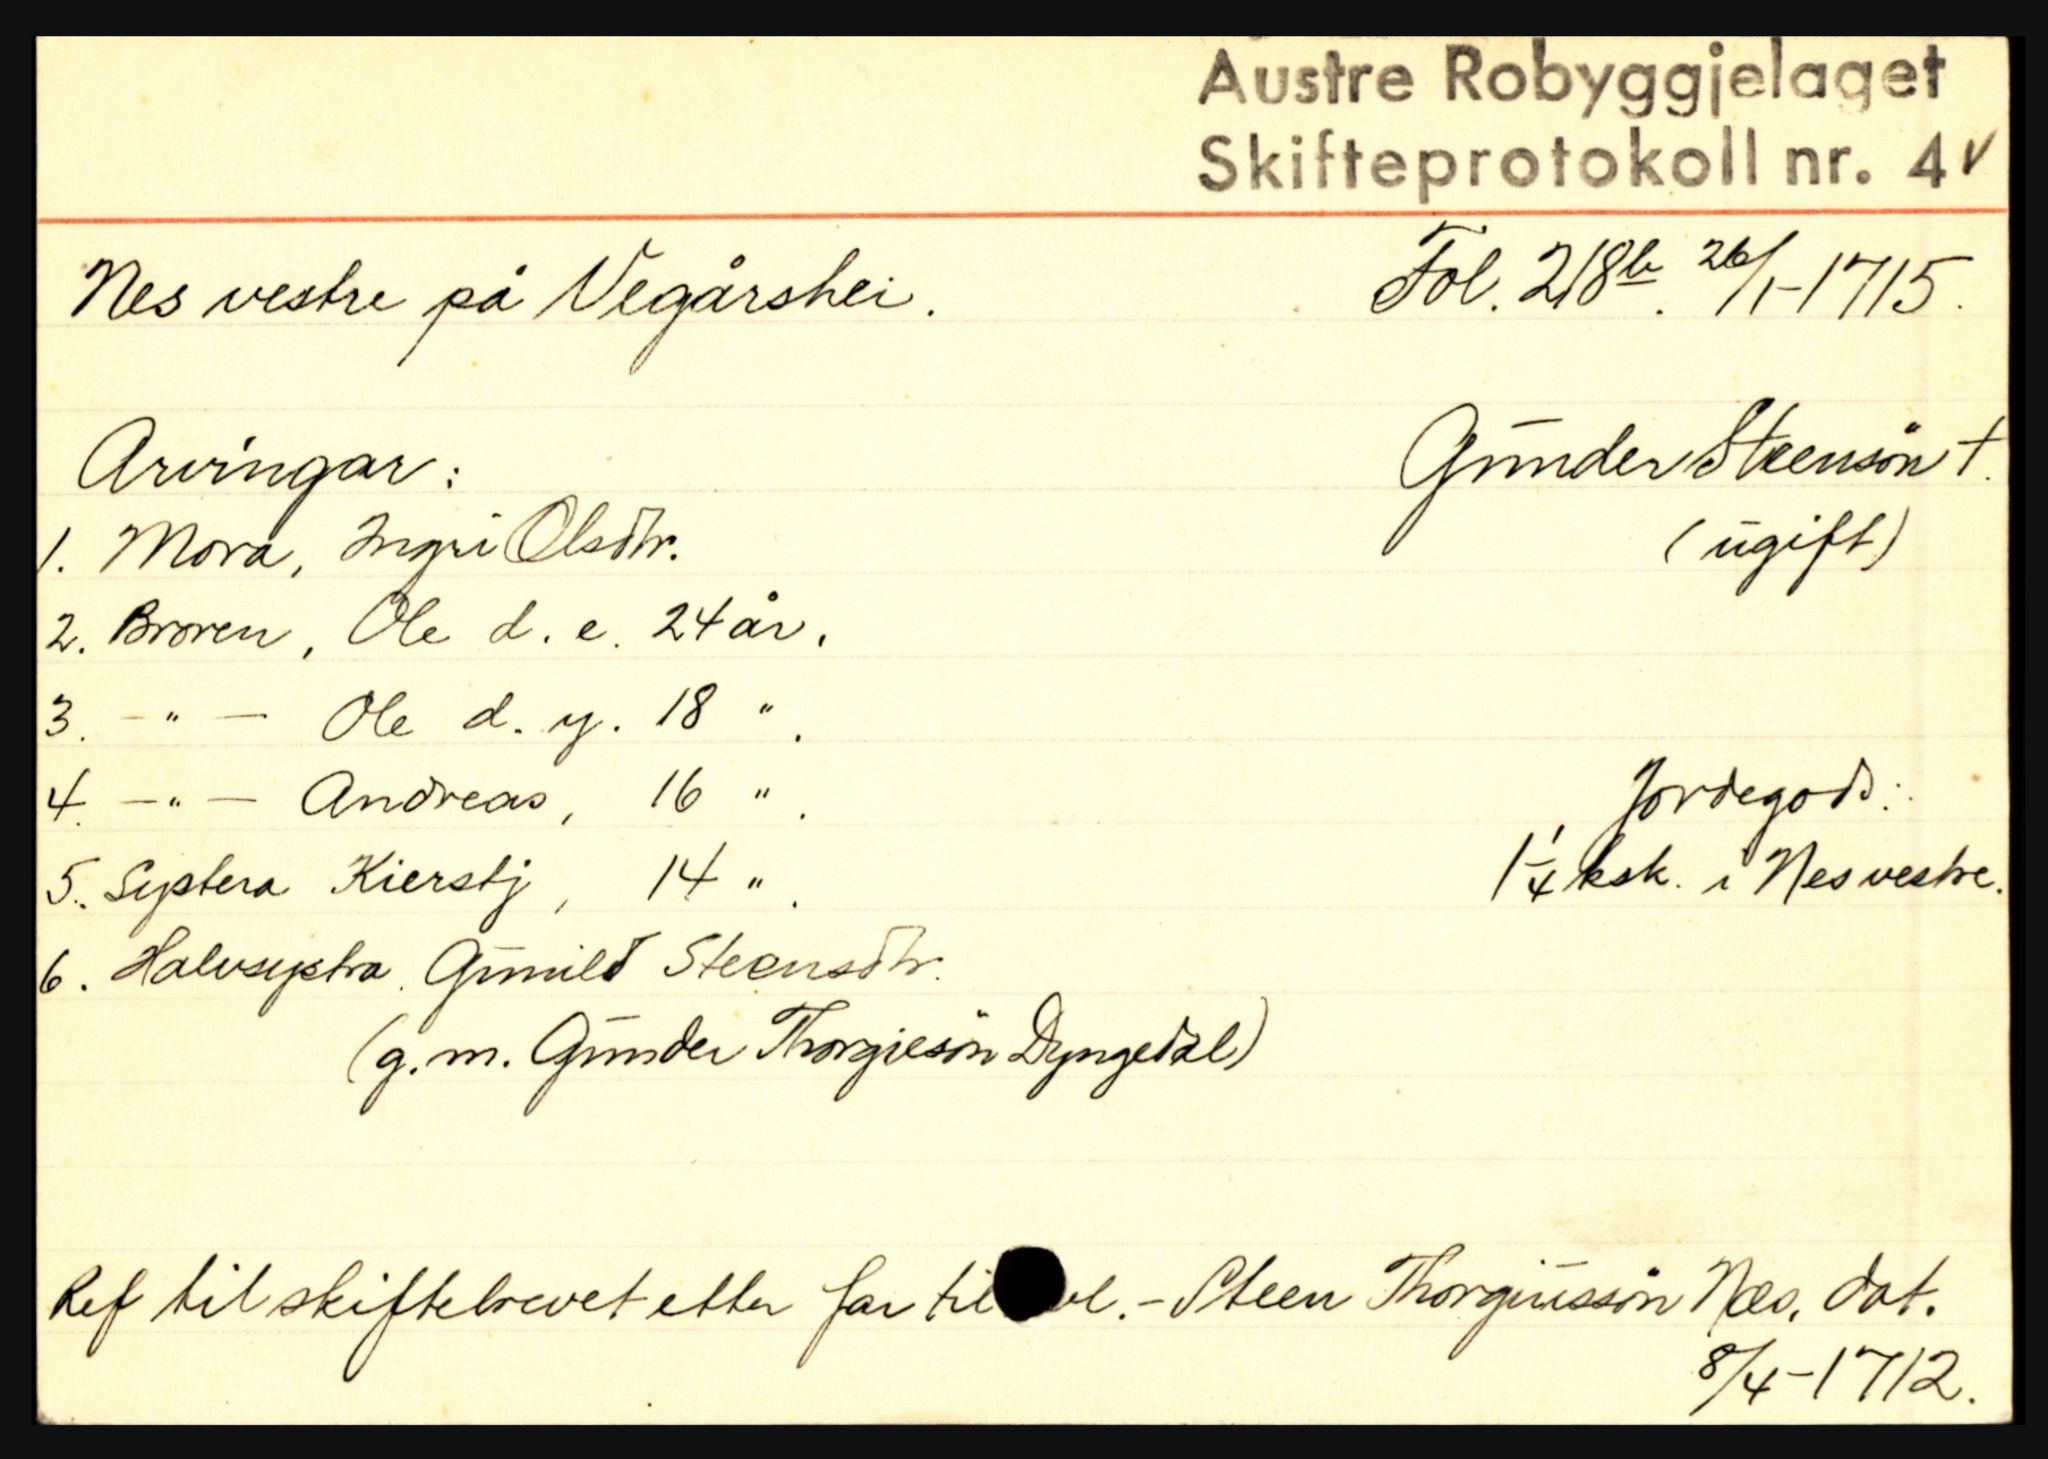 Austre Robyggjelaget
Skifteprotokoll nr. 4 v
Nes vestre på Vegårshei. Fol. 218b. 26/1-1715.
Arvingar: Gunder Steensön †.
1. Mora, Ingri Olsdtr. (ugift)
2. Broren, Ole d. e. 24 år.
3. -"- Ole d. y. 18 ".
4. -"- Andreas, 16 ". Jordegods:
5. Systera Kierstj, 14 ". 1 1/4 ksk. i Nes vestre.
6. Halvsystra. Gunild Steensdtr.
(g.m. Gunder Thorgiesön Dyngedal)
Ref til skiftebrevet etter far til avl. - Steen Thorgiussön Næs, dat.
8/4-1712.